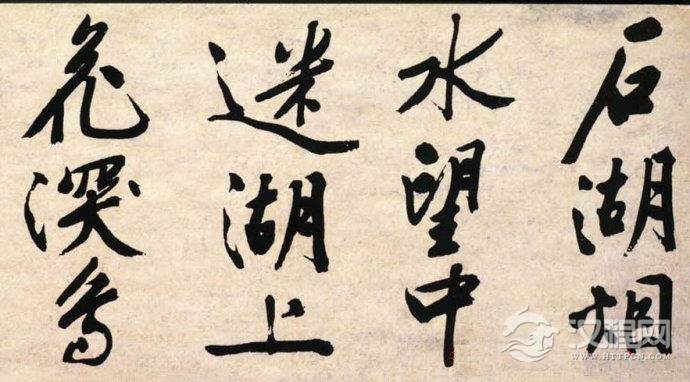 石湖烟
水望中
迷湖上
花深鳥
汉程网
WWW.HTTPCN.COM